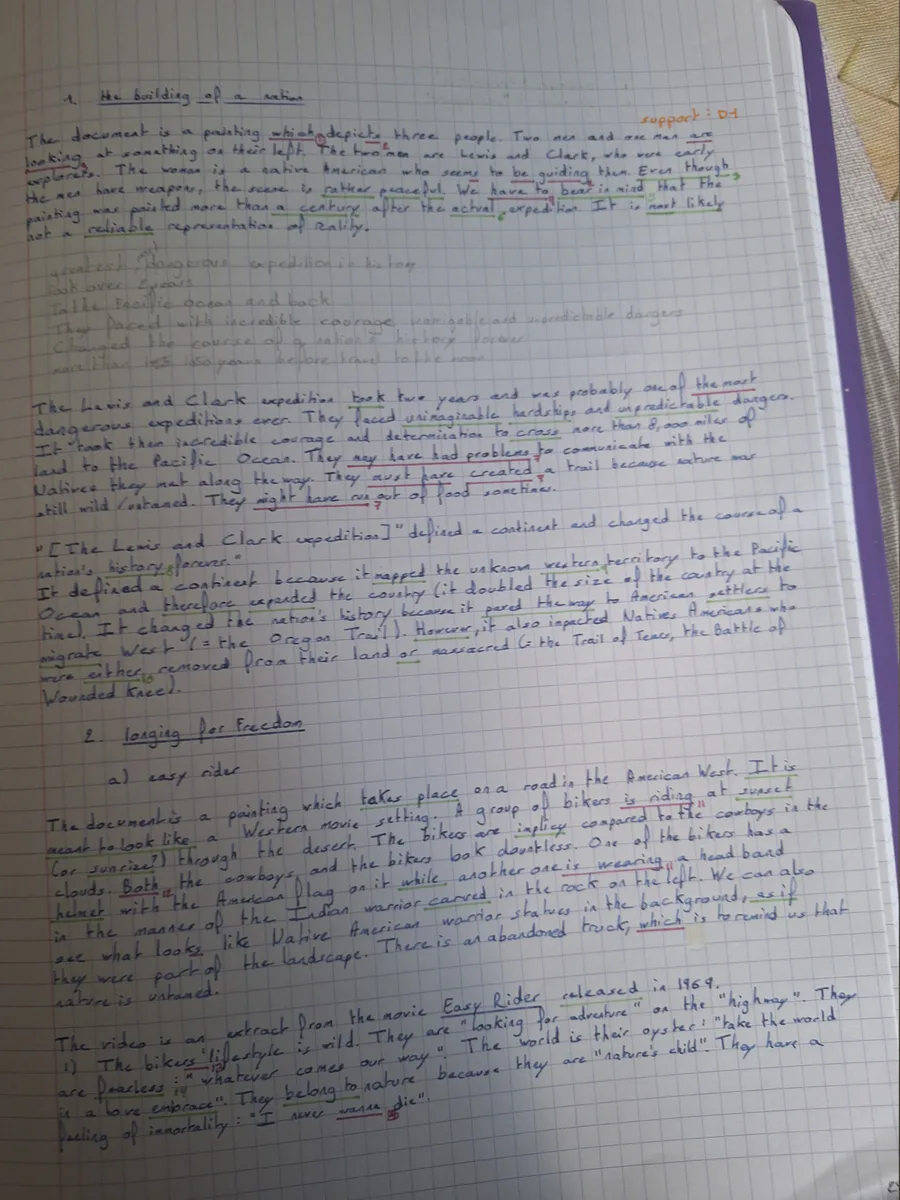 1. the building of a nation
support : D1
The document is a painting which depicts three people. Two men and one man are
looking at something on their left. The two men are Lewis and Clark, who were early
explorers. The woman is a native American who seems to be guiding them. Even though
the men have weapons, the scene is rather peaceful. We have to bear in mind that the
painting was painted more than a century after the actual expedition. It is most likely
not a reliable representation of reality.
dangerous expedition in history
took over 2 years
To the Pacific Ocean and back
They faced with incredible courage unimaginable and unpredictable dangers
Changed the course of a nation's history forever
more than 150 years before travel to the moon
The Lewis and Clark expedition took two years and was probably one of the most
dangerous expeditions ever. They faced unimaginable hardships and unpredictable dangers.
It took them incredible courage and determination to cross more than 8,000 miles of
land to the Pacific Ocean. They may have had problems to communicate with the
Natives they met along the way. They must have created a trail because nature was
still wild / untamed. They might have run out of food sometimes.
"[The Lewis and Clark expedition]" defined a continent and changed the course of a
nation's history forever."
It defined a continent because it mapped the unknown western territory to the Pacific
Ocean and therefore expanded the country (it doubled the size of the country at the
time). It changed the nation's history because it paved the way to American settlers to
migrate West (= the Oregon Trail). However, it also impacted Natives Americans who
were either removed from their land or massacred (= the Trail of Tears, the Battle of
Wounded Knee).
2. longing for Freedom
a) easy rider
The document is a painting which takes place on a road in the American West. It is
meant to look like a Western movie setting. A group of bikers is riding at sunset
(or sunrise?) through the desert. The bikers are implicy compared to the cowboys in the
clouds. Both the cowboys and the bikers look dountless. One of the bikers has a
helmet with the American flag on it while another one is wearing a head band
in the manner of the Indian warrior carved in the rock on the left. We can also
see what looks like Native American warrior statues in the background, as if
they were part of the landscape. There is an abandoned truck, which is to remind us that
nature is untamed.
The video is an extract from the movie Easy Rider released in 1969.
1) The bikers' lifestyle is wild. They are "looking for adventure" on the "highway". They
are fearless : "whatever comes our way". The world is their oyster : "take the world
in a love embrace". They belong to nature because they are "nature's child". They have a
feeling of immortality : "I never wanna die".